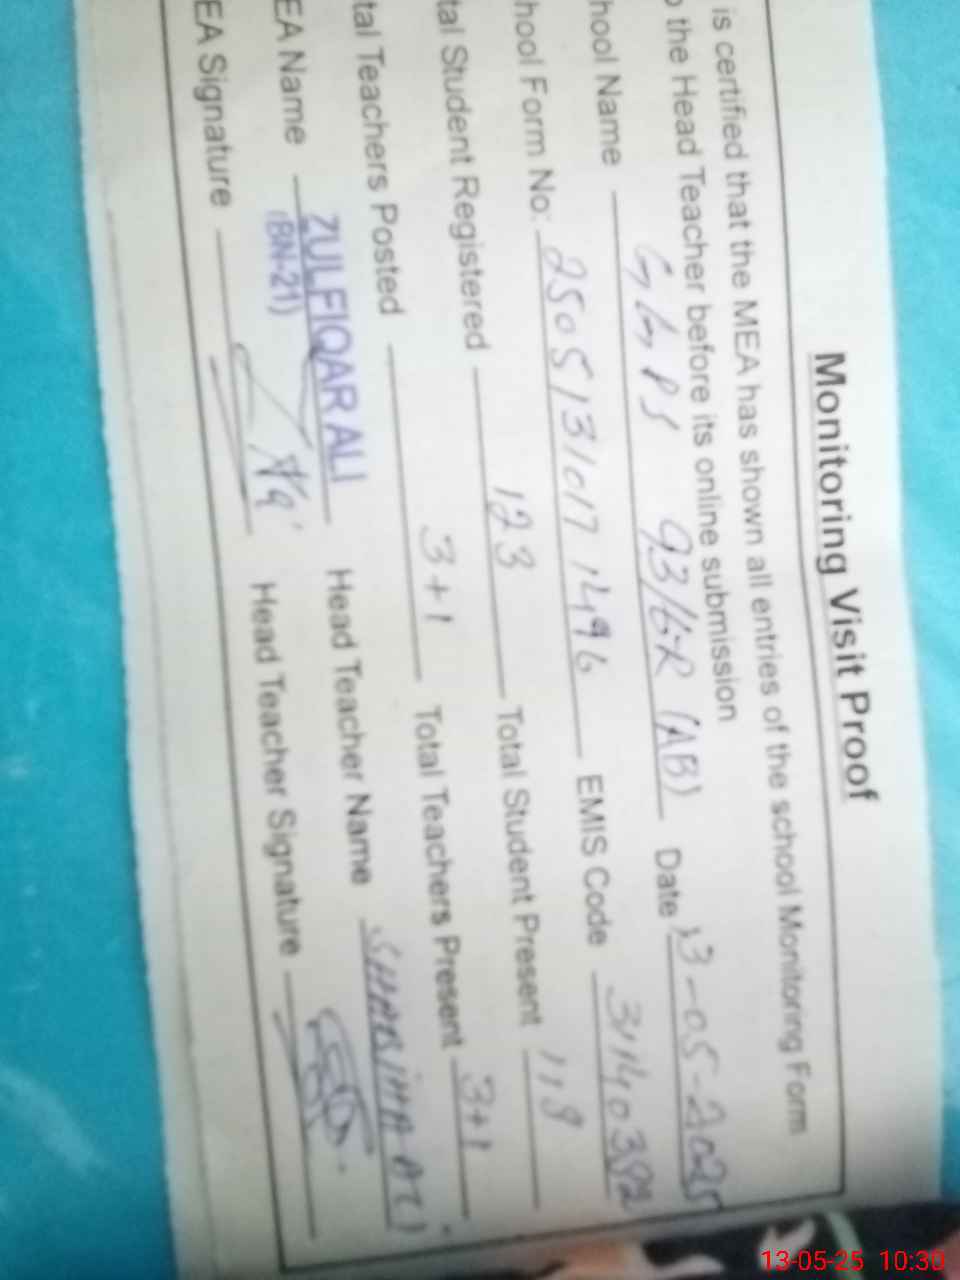 Monitoring Visit Proof
is certified that the MEA has shown all entries of the school Monitoring Form
the Head Teacher before its online submission
hool Name GGPS 93/6-R (AB) Date 13-05-2025
hool Form No: 2505131017 1496 EMIS Code
tal Student Registered 123 Total Student Present 118
tal Teachers Posted 3+1 Total Teachers Present 3+1
EA Name ZULFIQAR ALI Head Teacher Name
(BN-21)
EA Signature Head Teacher Signature
13-05-25 10:30